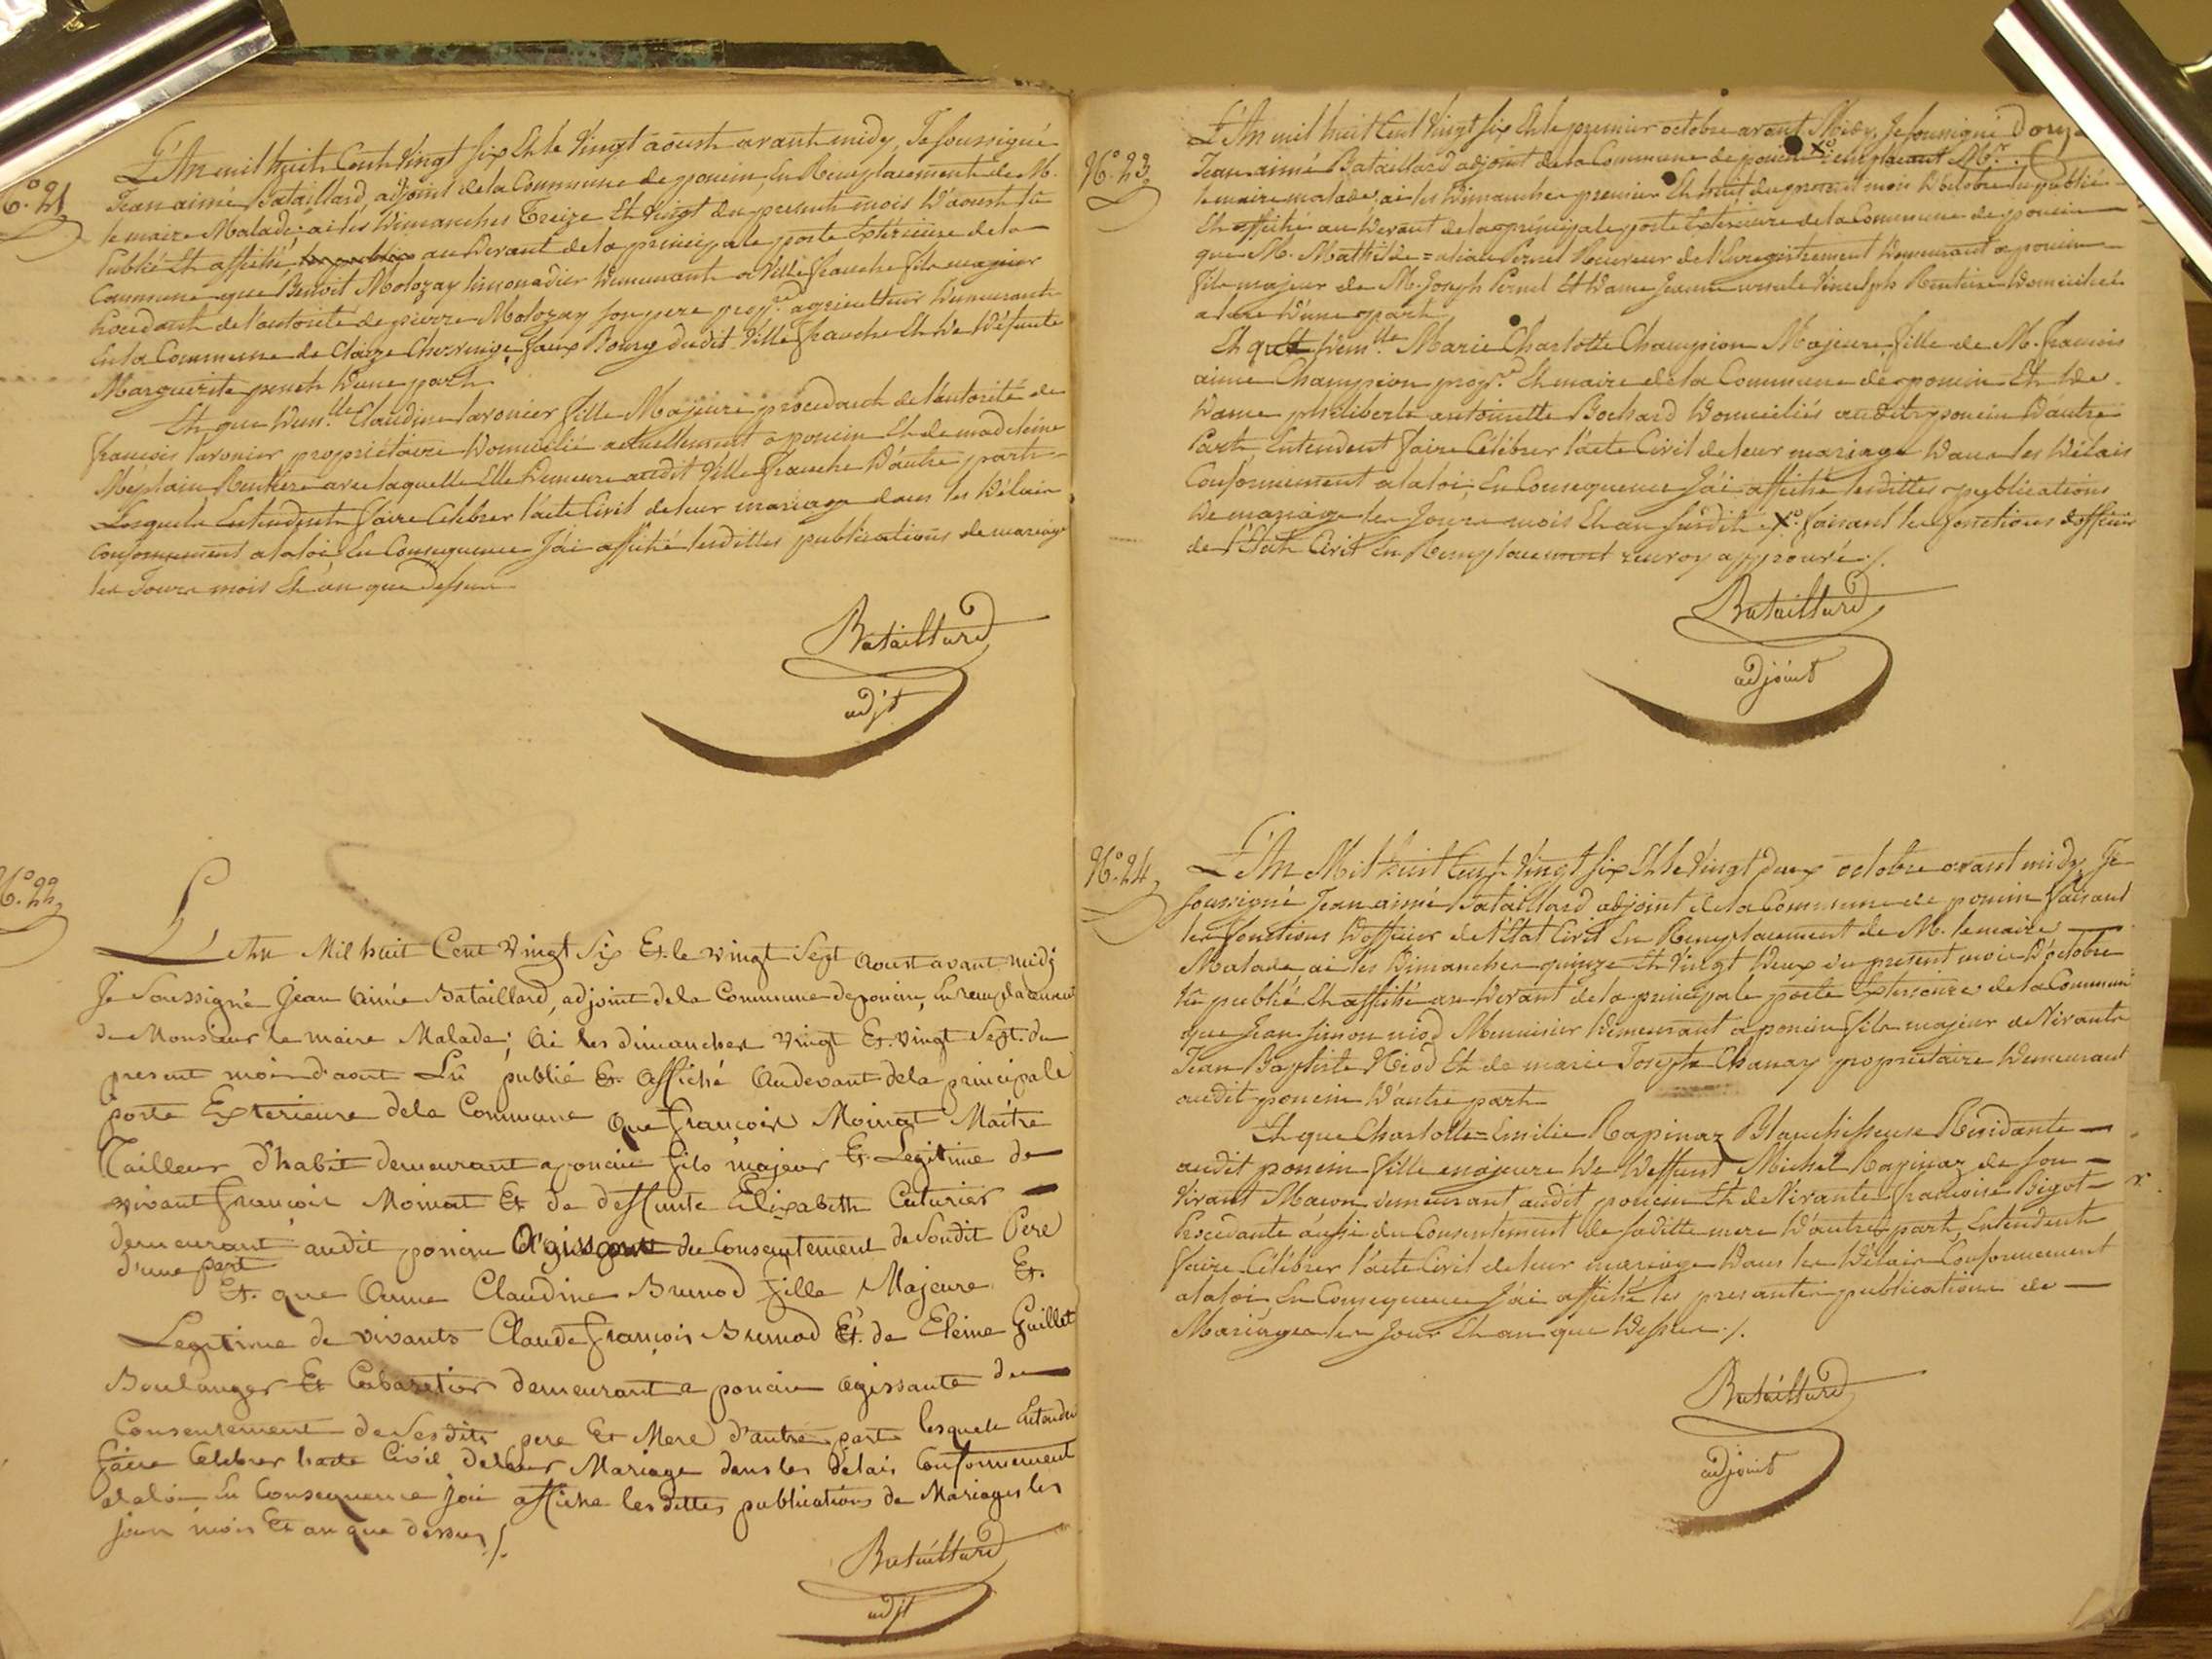 N.° 21
L'An mil huit Cent Vingt Six Et le Vingt aoust avant midy, Je soussigné
Jean aimé Bataillard, adjoint de la Commune de poncin, En Remplacement de M.
le maire Malade, ai les Dimanches Treize Et Vingt du present mois D'aoust lû
Publié Et affiché au Devant de la principale porte Exterieure de la
Commune que Benoit Molozay limonadier Demeurant a Ville franche fils majeur
procedant de l'autorité de pierre Molozay son pere prop.re agriculteur Demeurant
En la Commune de faux Bourg dudit Ville franche Et De Défunte
Marguerite D'une part
Et que Dem.lle Claudine favonier fille Majeure procedant de l'autorité de
françois favonier propriétaire Domicilié actuellement a poncin Et de madeleine
Méplain Rentiere avec laquelle Elle Demeure audit Ville franche D'autre part
Lesquels Entendent faire Celebrer l'acte Civil de leur mariage dans les Délais
Conformement a la loi En Consequence J'ai affiché lesdittes publications de mariage
les Jours mois Et an que Dessus
Bataillard
adjt
N.° 22
L'An Mil huit Cent Vingt Six Et le vingt Sept Aoust avant midj
Je Soussigné Jean Aimé Bataillard, adjoint de la Commune de poncin, En remplacement
de Monsieur le maire Malade; Ai les dimanches Vingt Et vingt Sept du
present mois d'aout Lû publié Et Affiché Audevant de la principale
porte Exterieure de la Commune Que françois Moinat Maître
Tailleur d'habit demeurant a poncin fils majeur Et Legitime de
vivant françois Moinat Et de deffunte Elizabeth Caturier
demeurant audit poncin Agissant du Consentement de Soudit Pere
d'une part
Et que Anne Claudine Brunod fille Majeure Et
Legitime de vivants Claude françois Brunod Et de Eleine Guillet
Boulanger Et Cabaretier demeurant a poncin agissante du
Consentement de Sesdits pere Et Mere d'autre part lesquels Entendent
faire Celebrer l'acte Civil de leur Mariage dans les délais Conformement
a la loi En Consequence jai affiché lesdittes publications de Mariages les
jour mois Et an que dessus ./.
Bataillard
adjt
N.° 23
L'An mil huit Cent Vingt six Et le premier octobre avant Midy, Je soussigné
Jean aimé Bataillard adjoint de la Commune de poncin X° remplacant Mr.
le maire malade, ai les Dimanches premier Et huit du present mois D'octobre lu publié
Et affiché au Devant de la principale porte Exterieure de la Commune de poncin
que M. Mathilde = Pernet Receveur de l'Enregistrement Demeurant a poncin
fils majeur de M. Joseph Pernet Et Dame Jeanne ursule Rentiere Domiciliée
D'une part
Et que Dem.lle Marie Charlotte Champion Majeure, fille de M. françois
aimé Champion prop.re Et maire de la Commune de poncin Et De
Dame philiberte antoinette Bochard Domiciliés audit poncin D'autre
Part, Entendent faire Célébrer l'acte Civil de leur mariage Dans les Délais
Conformement a la loi; En Consequence J'ai affiché lesdittes publications
De mariage les Jours mois Et an susdit. X° faisant les fonctions d'officier
de l'Etat Civil En Remplacement renvoy approuvé ./.
Bataillard
adjoint
N.° 24
L'An Mil huit Cent Vingt six Et le Vingt deux octobre avant midy, Je
soussigné Jean aimé Bataillard adjoint de la Commune de poncin faisant
les fonctions D'officier de l'Etat Civil En Remplacement de M. le maire
Malade, ai les Dimanches quinze Et Vingt Deux du present mois D'octobre
lû publié Et affiché au Devant de la principale porte Exterieure de la Commune
que Jean Simon niod Menuisier Demeurant a poncin fils majeur de Vivants
Jean Baptiste Niod Et de marie Josephe Chanay propriétaire Demeurant
audit poncin D'autre part
Et que Charlotte = Emilie Rapinaz Blanchisseuse Residante
audit poncin fille majeure De Deffunt Michel Rapinaz de son
Vivant Maçon demeurant audit poncin Et de Vivante francoise Bigot
Procedante aussi du Consentement de saditte mere D'autre part, Entendent
faire Célébrer l'acte Civil de leur mariage Dans les Délais Conformement
a la loi, En Consequence J'ai affiché les presantes publications de
Mariages les Jour Et an que Dessus ./.
Bataillard
adjoint